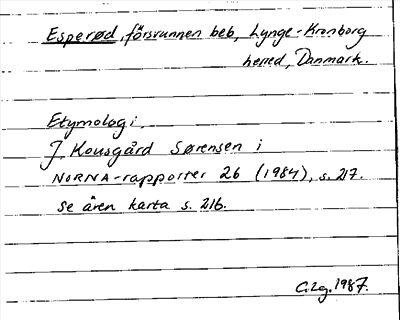 Esperød, försvunnen beb, Lynge-Kronborg
herred, Danmark.
Etymologi.
J. Kousgård Sørensen i
NORNA-rapporter 26 (1984), s. 217.
Se även karta s. 216.
C.Zg. 1987.